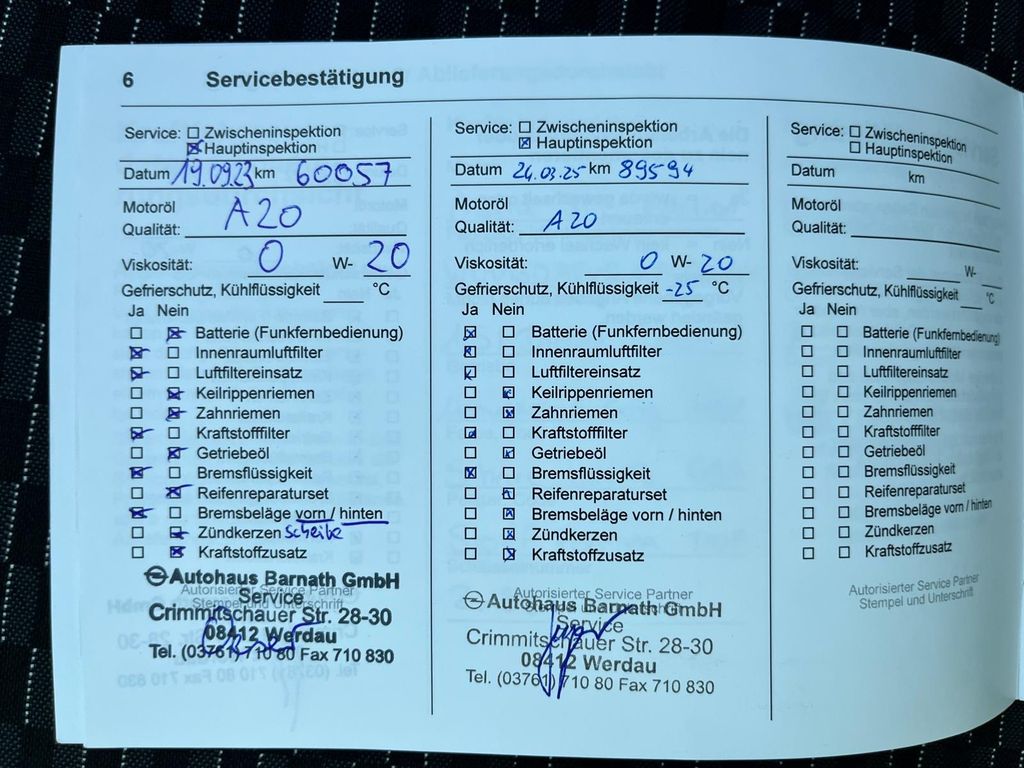 6 Servicebestätigung
Service: Zwischeninspektion
Hauptinspektion
Datum 19.09.23 km 60057
Motoröl
Qualität: A20
Viskosität: 0 W- 20
Gefrierschutz, Kühlflüssigkeit °C
Ja Nein
Batterie (Funkfernbedienung)
Innenraumluftfilter
Luftfiltereinsatz
Keilrippenriemen
Zahnriemen
Kraftstofffilter
Getriebeöl
Bremsflüssigkeit
Reifenreparaturset
Bremsbeläge vorn / hinten
Zündkerzen Scheibe
Kraftstoffzusatz
Autorisierter Service Partner
Stempel und Unterschrift
Autohaus Barnath GmbH
Service
Crimmitschauer Str. 28-30
08412 Werdau
Tel. (03761) 710 80 Fax 710 830
Service: Zwischeninspektion
Hauptinspektion
Datum 24.03.25 km 89594
Motoröl
Qualität: A20
Viskosität: 0 W- 20
Gefrierschutz, Kühlflüssigkeit -25 °C
Ja Nein
Batterie (Funkfernbedienung)
Innenraumluftfilter
Luftfiltereinsatz
Keilrippenriemen
Zahnriemen
Kraftstofffilter
Getriebeöl
Bremsflüssigkeit
Reifenreparaturset
Bremsbeläge vorn / hinten
Zündkerzen
Kraftstoffzusatz
Autorisierter Service Partner
Stempel und Unterschrift
Autohaus Barnath GmbH
Service
Crimmitschauer Str. 28-30
08412 Werdau
Tel. (03761) 710 80 Fax 710 830
Service: Zwischeninspektion
Hauptinspektion
Datum km
Motoröl
Qualität:
Viskosität: W-
Gefrierschutz, Kühlflüssigkeit °C
Ja Nein
Batterie (Funkfernbedienung)
Innenraumluftfilter
Luftfiltereinsatz
Keilrippenriemen
Zahnriemen
Kraftstofffilter
Getriebeöl
Bremsflüssigkeit
Reifenreparaturset
Bremsbeläge vorn / hinten
Zündkerzen
Kraftstoffzusatz
Autorisierter Service Partner
Stempel und Unterschrift